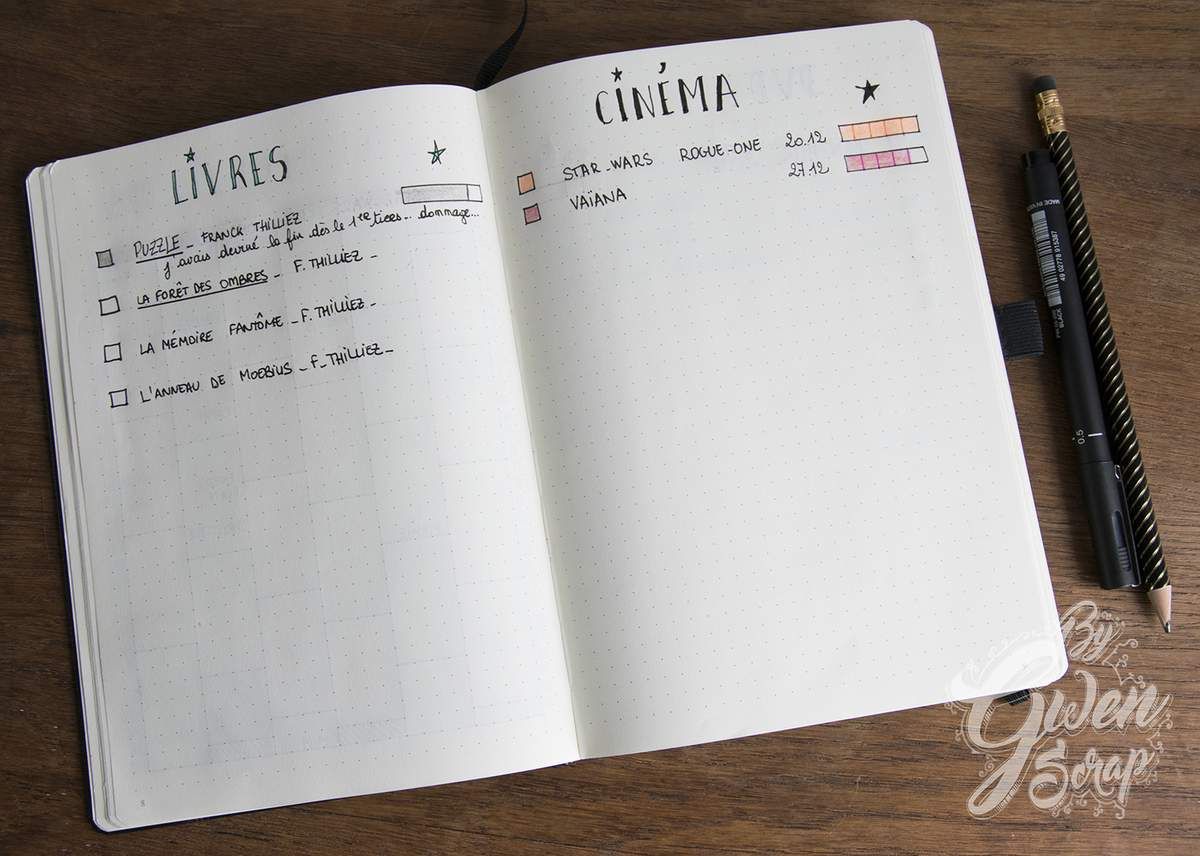 LIVRES
PUZZLE _ FRANCK THILLIEZ
j'avais deviné la fin dès le 1er tiers... dommage...
LA FORÊT DES OMBRES _ F. THILLIEZ _
LA MÉMOIRE FANTÔME _ F. THILLIEZ _
L'ANNEAU DE MOEBIUS _ F_THILLIEZ _
8
CINÉMA
STAR_WARS ROGUE-ONE 20.12
VAÏANA 27.12
MADE IN
BLACK
0.5
By
Gwen
Scrap